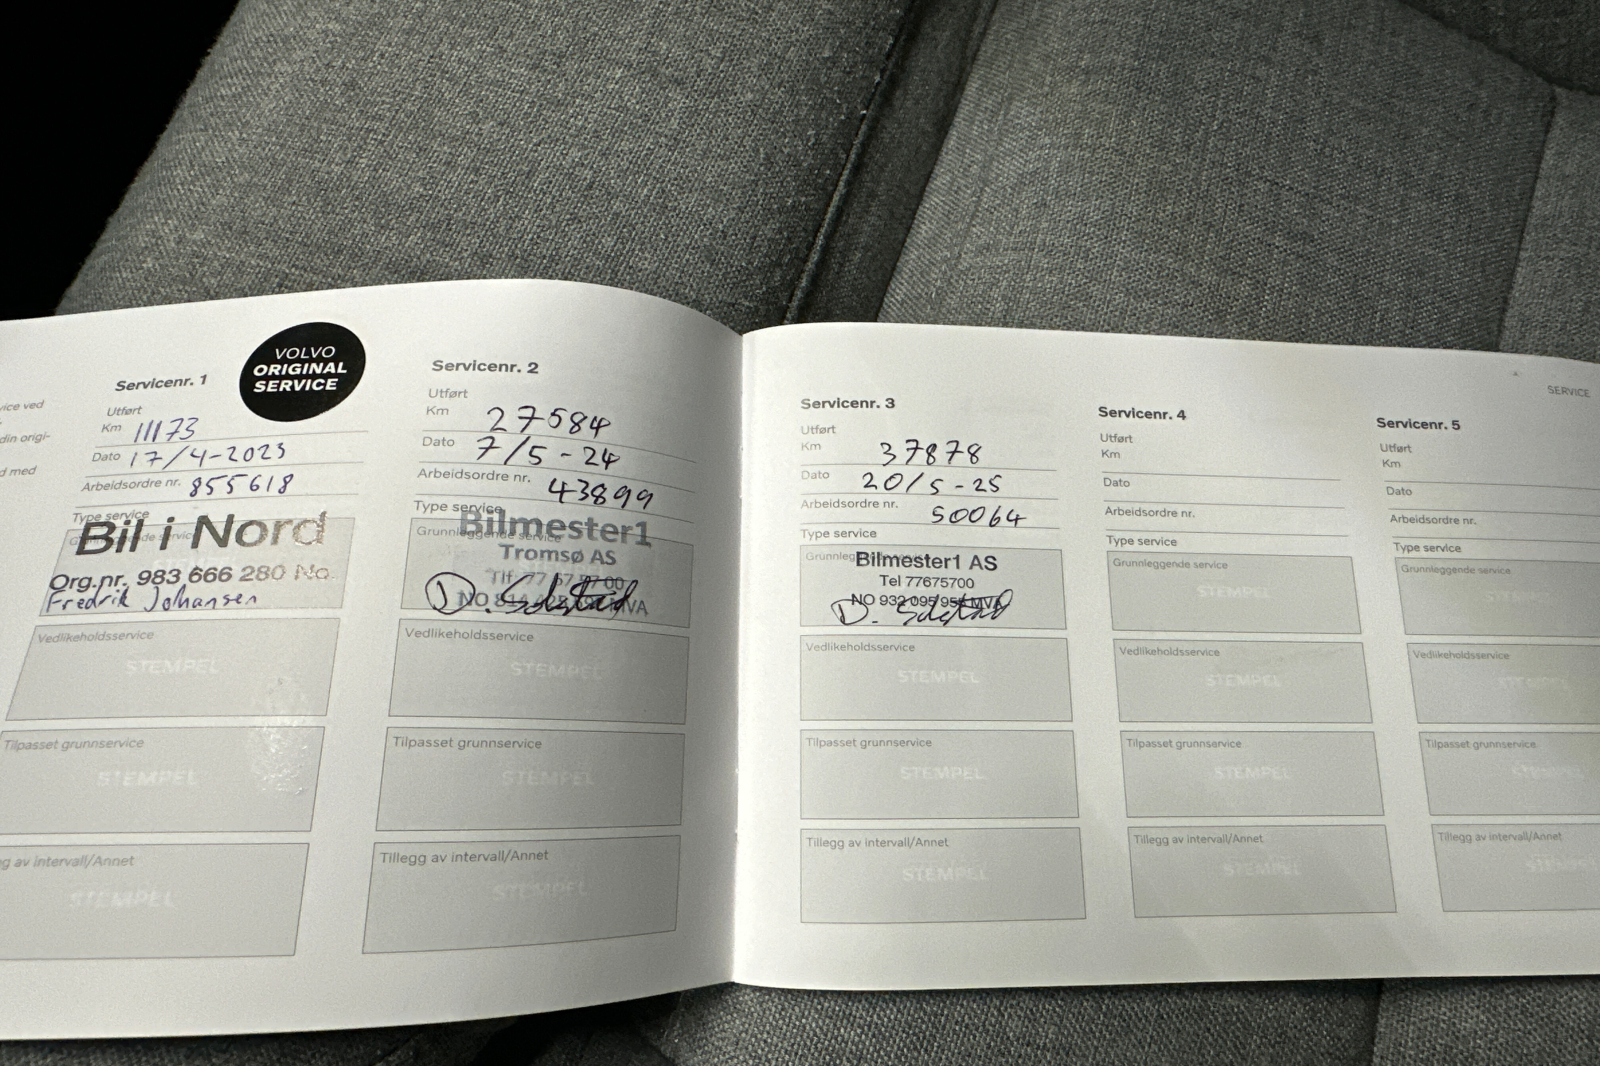 vice ved
din origi-
d med
VOLVO
ORIGINAL
SERVICE
Servicenr. 1
Utført
Km 11173
Dato 17/4-2023
Arbeidsordre nr. 855618
Type service
Bil i Nord
Org.nr. 983 666 280
Fredrik Johansen
Vedlikeholdsservice
STEMPEL
Tilpasset grunnservice
STEMPEL
g av intervall/Annet
STEMPEL
Servicenr. 2
Utført
Km 27584
Dato 7/5-24
Arbeidsordre nr. 43899
Type service
Grunnleggende service
Bilmester1
Tromsø AS
D. Solstad
Vedlikeholdsservice
STEMPEL
Tilpasset grunnservice
STEMPEL
Tillegg av intervall/Annet
STEMPEL
SERVICE
Servicenr. 3
Utført
Km 37878
Dato 20/5-25
Arbeidsordre nr. 50064
Type service
Bilmester1 AS
Tel 77675700
NO 932 095 95 MVA
D. Solstad
Vedlikeholdsservice
STEMPEL
Tilpasset grunnservice
STEMPEL
Tillegg av intervall/Annet
STEMPEL
Servicenr. 4
Utført
Km
Dato
Arbeidsordre nr.
Type service
Grunnleggende service
STEMPEL
Vedlikeholdsservice
STEMPEL
Tilpasset grunnservice
STEMPEL
Tillegg av intervall/Annet
STEMPEL
Servicenr. 5
Utført
Km
Dato
Arbeidsordre nr.
Type service
Grunnleggende service
Vedlikeholdsservice
Tilpasset grunnservice
Tillegg av intervall/Annet